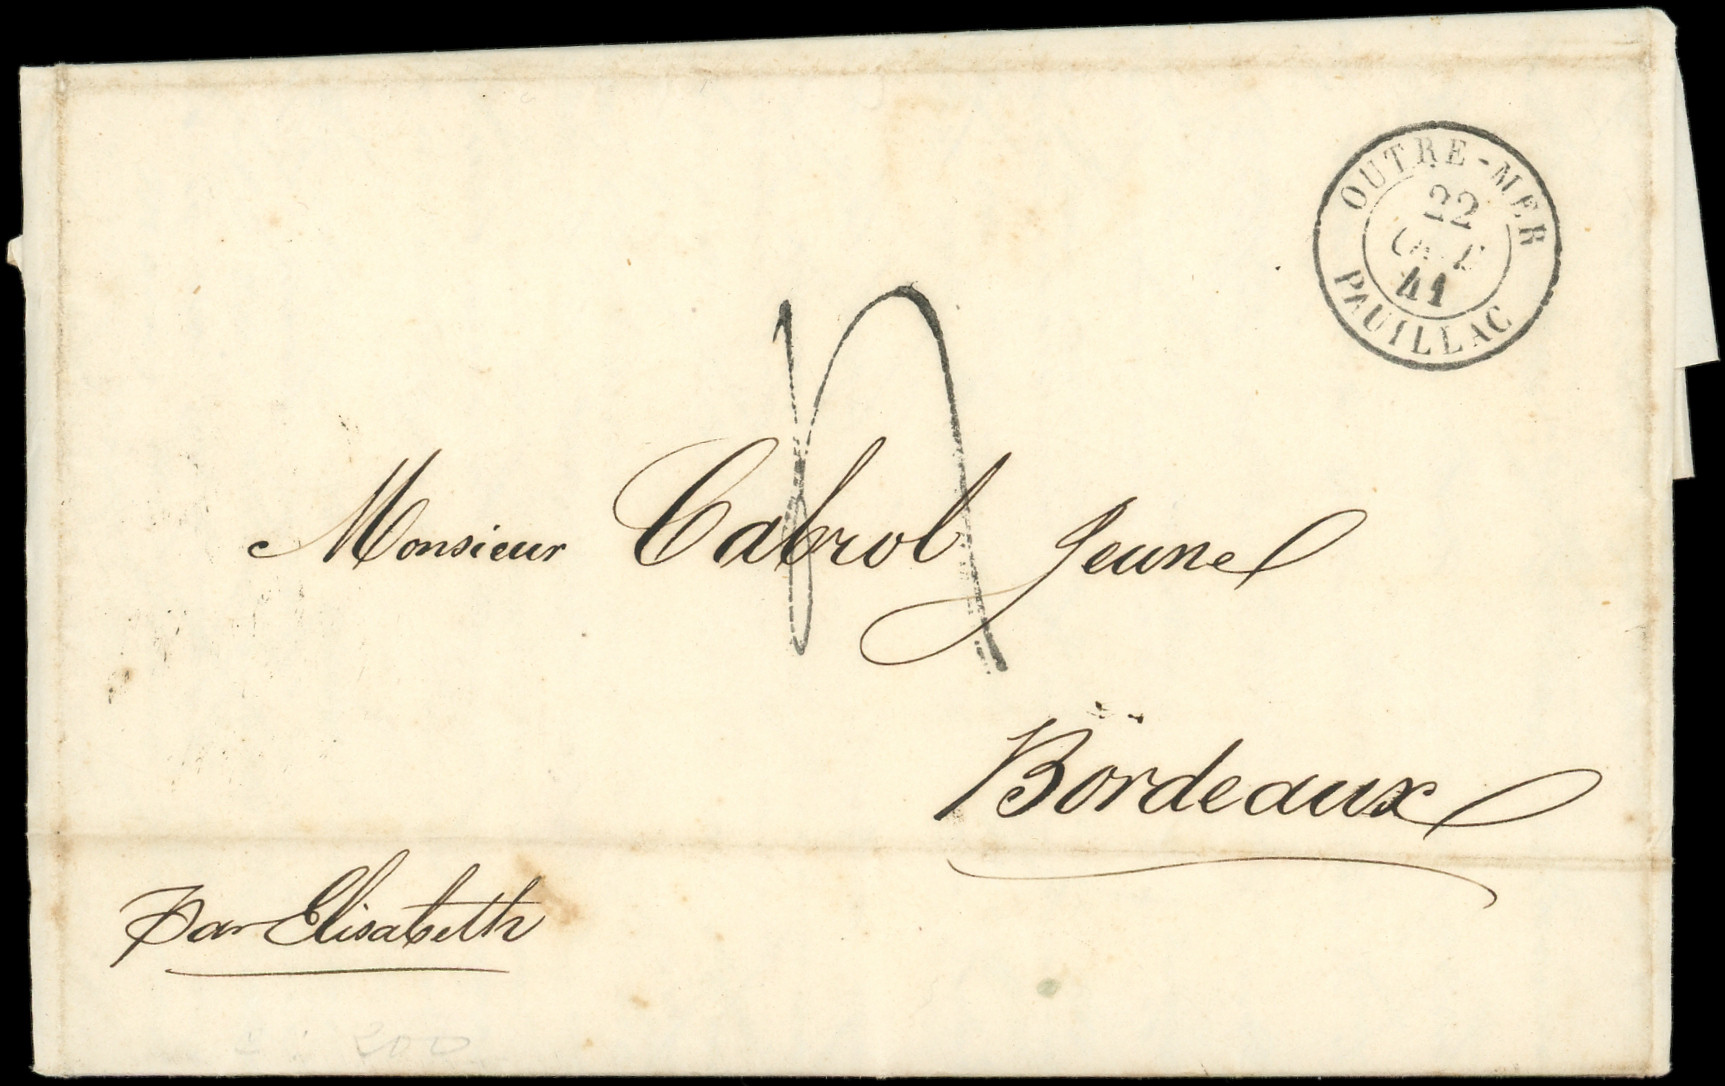 OUTRE-MER
22
41
PAUILLAC
Monsieur Cabrol Jeune
Bordeaux
par Elisabeth
200